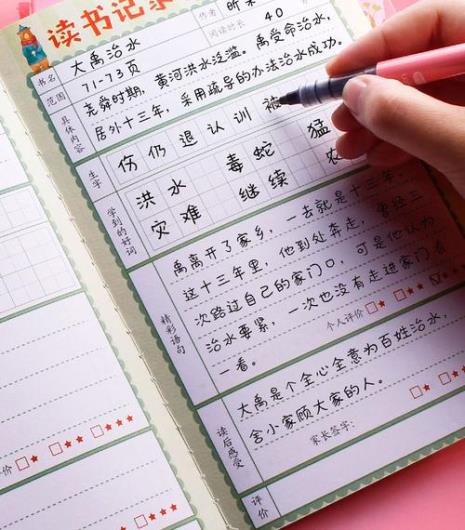 读书记录
作者 昕
书名 大禹治水
阅读时长 40
范围 71-73页
具体内容
尧舜时期，黄河洪水泛滥。禹受命治水，
居外十三年，采用疏导的办法治水成功。
生字 伤 仍 退 认 训 被
学到的好词
洪水 毒蛇 猛
灾难 继续 农
精彩语句
禹离开了家乡，一去就是十三年。
这十三年里，他到处奔走，曾经三
次路过自己的家门口，可是他认为
治水要紧，一次也没有走进家门看
一看。
个人评价
读后感受
大禹是个全心全意为百姓治水，
舍小家顾大家的人。
家长签字：
评价
评价